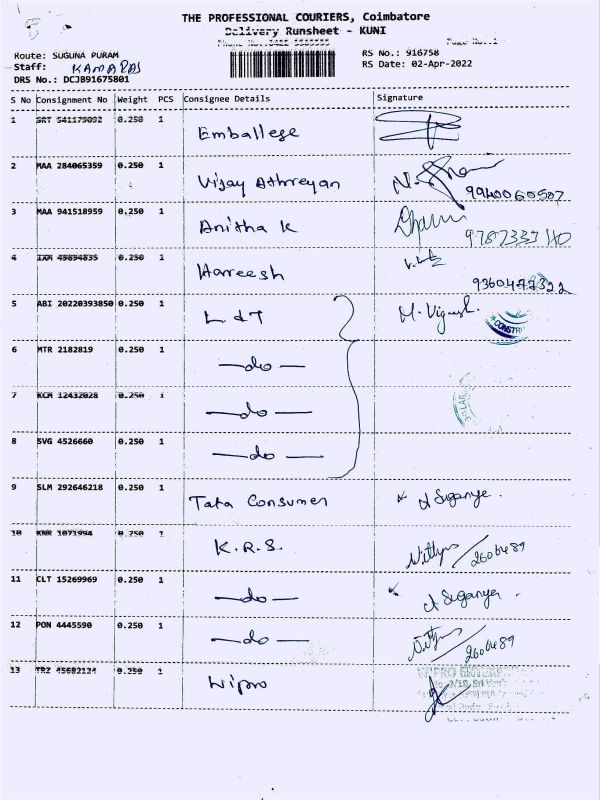 THE PROFESSIONAL COURIERS, Coimbatore
Delivery Runsheet - KUNI
Route: SUGUNA PURAM
RS No.: 916758
Staff: KAMARAJ
RS Date: 02-Apr-2022
DRS No.: DCJB91675801
S No Consignment No Weight PCS Consignee Details Signature
1 SRT 541179092 0.250 1 Emballege
2 MAA 284065359 0.250 1 Vijay Athreyan 9940060507
3 MAA 941518959 0.250 1 Anitha K
4 IXM 49894835 0.250 1 Hareesh
5 ABI 20220393850 0.250 1 L&T M. Vignesh.
6 MTR 2182819 0.250 1 —do—
7 KCM 12432028 0.250 1 —do—
8 SVG 4526660 0.250 1 —do—
9 SLM 292646218 0.250 1 Tata Consumer Suganya.
10 KNR 1071994 0.250 1 K.R.S. 2606489
11 CLT 15269969 0.250 1 —do— Suganya
12 PON 4445590 0.250 1 —do— 2606489
13 TRZ 45682121 0.250 1 Wipro